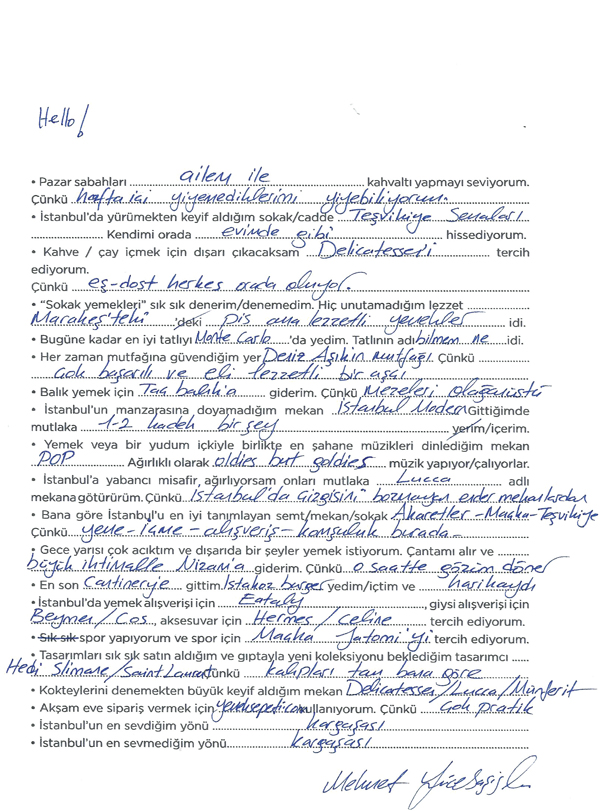 Hello!
• Pazar sabahları ailem ile kahvaltı yapmayı seviyorum.
Çünkü hafta içi yiyemediklerimi yiyebiliyorum.
• İstanbul'da yürümekten keyif aldığım sokak/cadde Teşvikiye
Kendimi orada evinde gibi hissediyorum.
• Kahve / çay içmek için dışarı çıkacaksam Delicatessen'i tercih
ediyorum.
Çünkü eş-dost herkes orada oluyor.
• "Sokak yemekleri" sık sık denerim/denemedim. Hiç unutamadığım lezzet
Marakeş'teki 'deki pis ama lezzetli yemekler idi.
• Bugüne kadar en iyi tatlıyı Monte Carlo 'da yedim. Tatlının adı bilmem ne idi.
• Her zaman mutfağına güvendiğim yer Deniz Aşıkın mutfağı Çünkü
çok başarılı ve eli lezzetli bir aşçı
• Balık yemek için Tag balık'a giderim. Çünkü Mezeleri olağanüstü
• İstanbul'un manzarasına doyamadığım mekan İstanbul Modern Gittiğimde
mutlaka 1-2 kadeh bir şey yerim/içerim.
• Yemek veya bir yudum içkiyle birlikte en şahane müzikleri dinlediğim mekan
POP Ağırlıklı olarak oldies but goldies müzik yapıyor/çalıyorlar.
• İstanbul'a yabancı misafir, ağırlıyorsam onları mutlaka Lucca adlı
mekana götürürüm. Çünkü İstanbul'da çizgisini bozmayan ender mekanlardan
• Bana göre İstanbul'u en iyi tanımlayan semt/mekan/sokak Akaretler-Maçka-Teşvikiye
Çünkü yeme-içme-alışveriş-komşuluk burada-
• Gece yarısı çok acıktım ve dışarıda bir şeyler yemek istiyorum. Çantamı alır ve
büyük ihtimalle Nizam'a giderim. Çünkü o saatte gözüm döner
• En son Cantinery'e gittim Istakoz burger yedim/içtim ve harikaydı
• İstanbul'da yemek alışverişi için Eataly giysi alışverişi için
Beymen/Cos, aksesuvar için Hermes/Celine tercih ediyorum.
• Sık sık spor yapıyorum ve spor için Maçka Jatomi'yi tercih ediyorum.
• Tasarımları sık sık satın aldığım ve gıptayla yeni koleksiyonu beklediğim tasarımcı
Hedi Slimane/Saint Laurent Çünkü kalıpları tam bana göre
• Kokteylerini denemekten büyük keyif aldığım mekan Delicatessen/Lucca/Münferit
• Akşam eve sipariş vermek için yemeksepeti.com kullanıyorum. Çünkü çok pratik
• İstanbul'un en sevdiğim yönü kargaşası
• İstanbul'un en sevmediğim yönü kargaşası
Mehmet